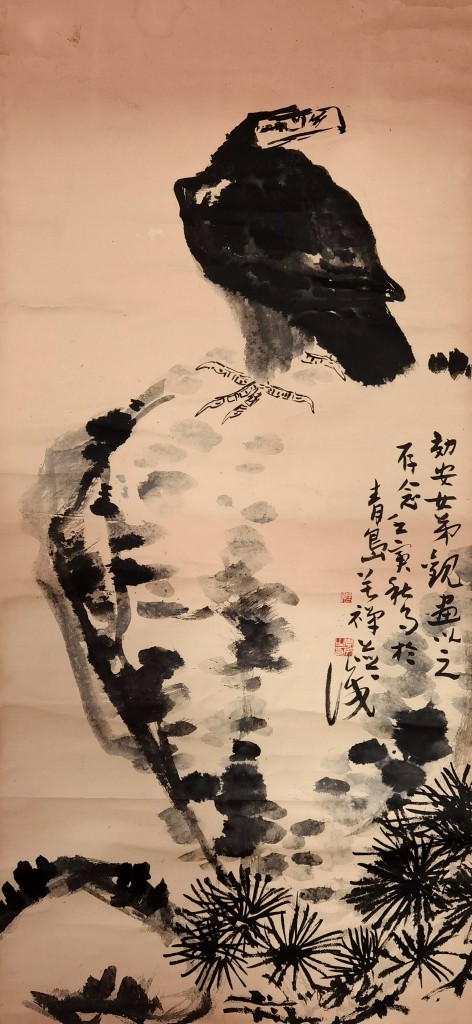 安女弟觀畫以之
存念壬寅秋写於
青島苦禪並識